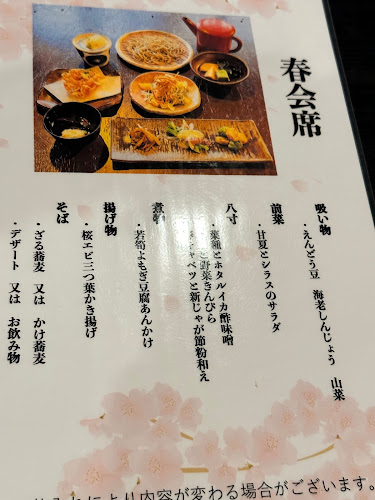 春会席
吸い物
・えんどう豆 海老しんじょう 山菜
前菜
・甘夏とシラスのサラダ
八寸
・菜種とホタルイカ酢味噌
野菜きんぴら
キャベツと新じゃが節粉和え
煮物
・若筍よもぎ豆腐あんかけ
揚げ物
・桜エビ三つ葉かき揚げ
そば
・ざる蕎麦 又は かけ蕎麦
・デザート 又は お飲み物
により内容が変わる場合がございます。